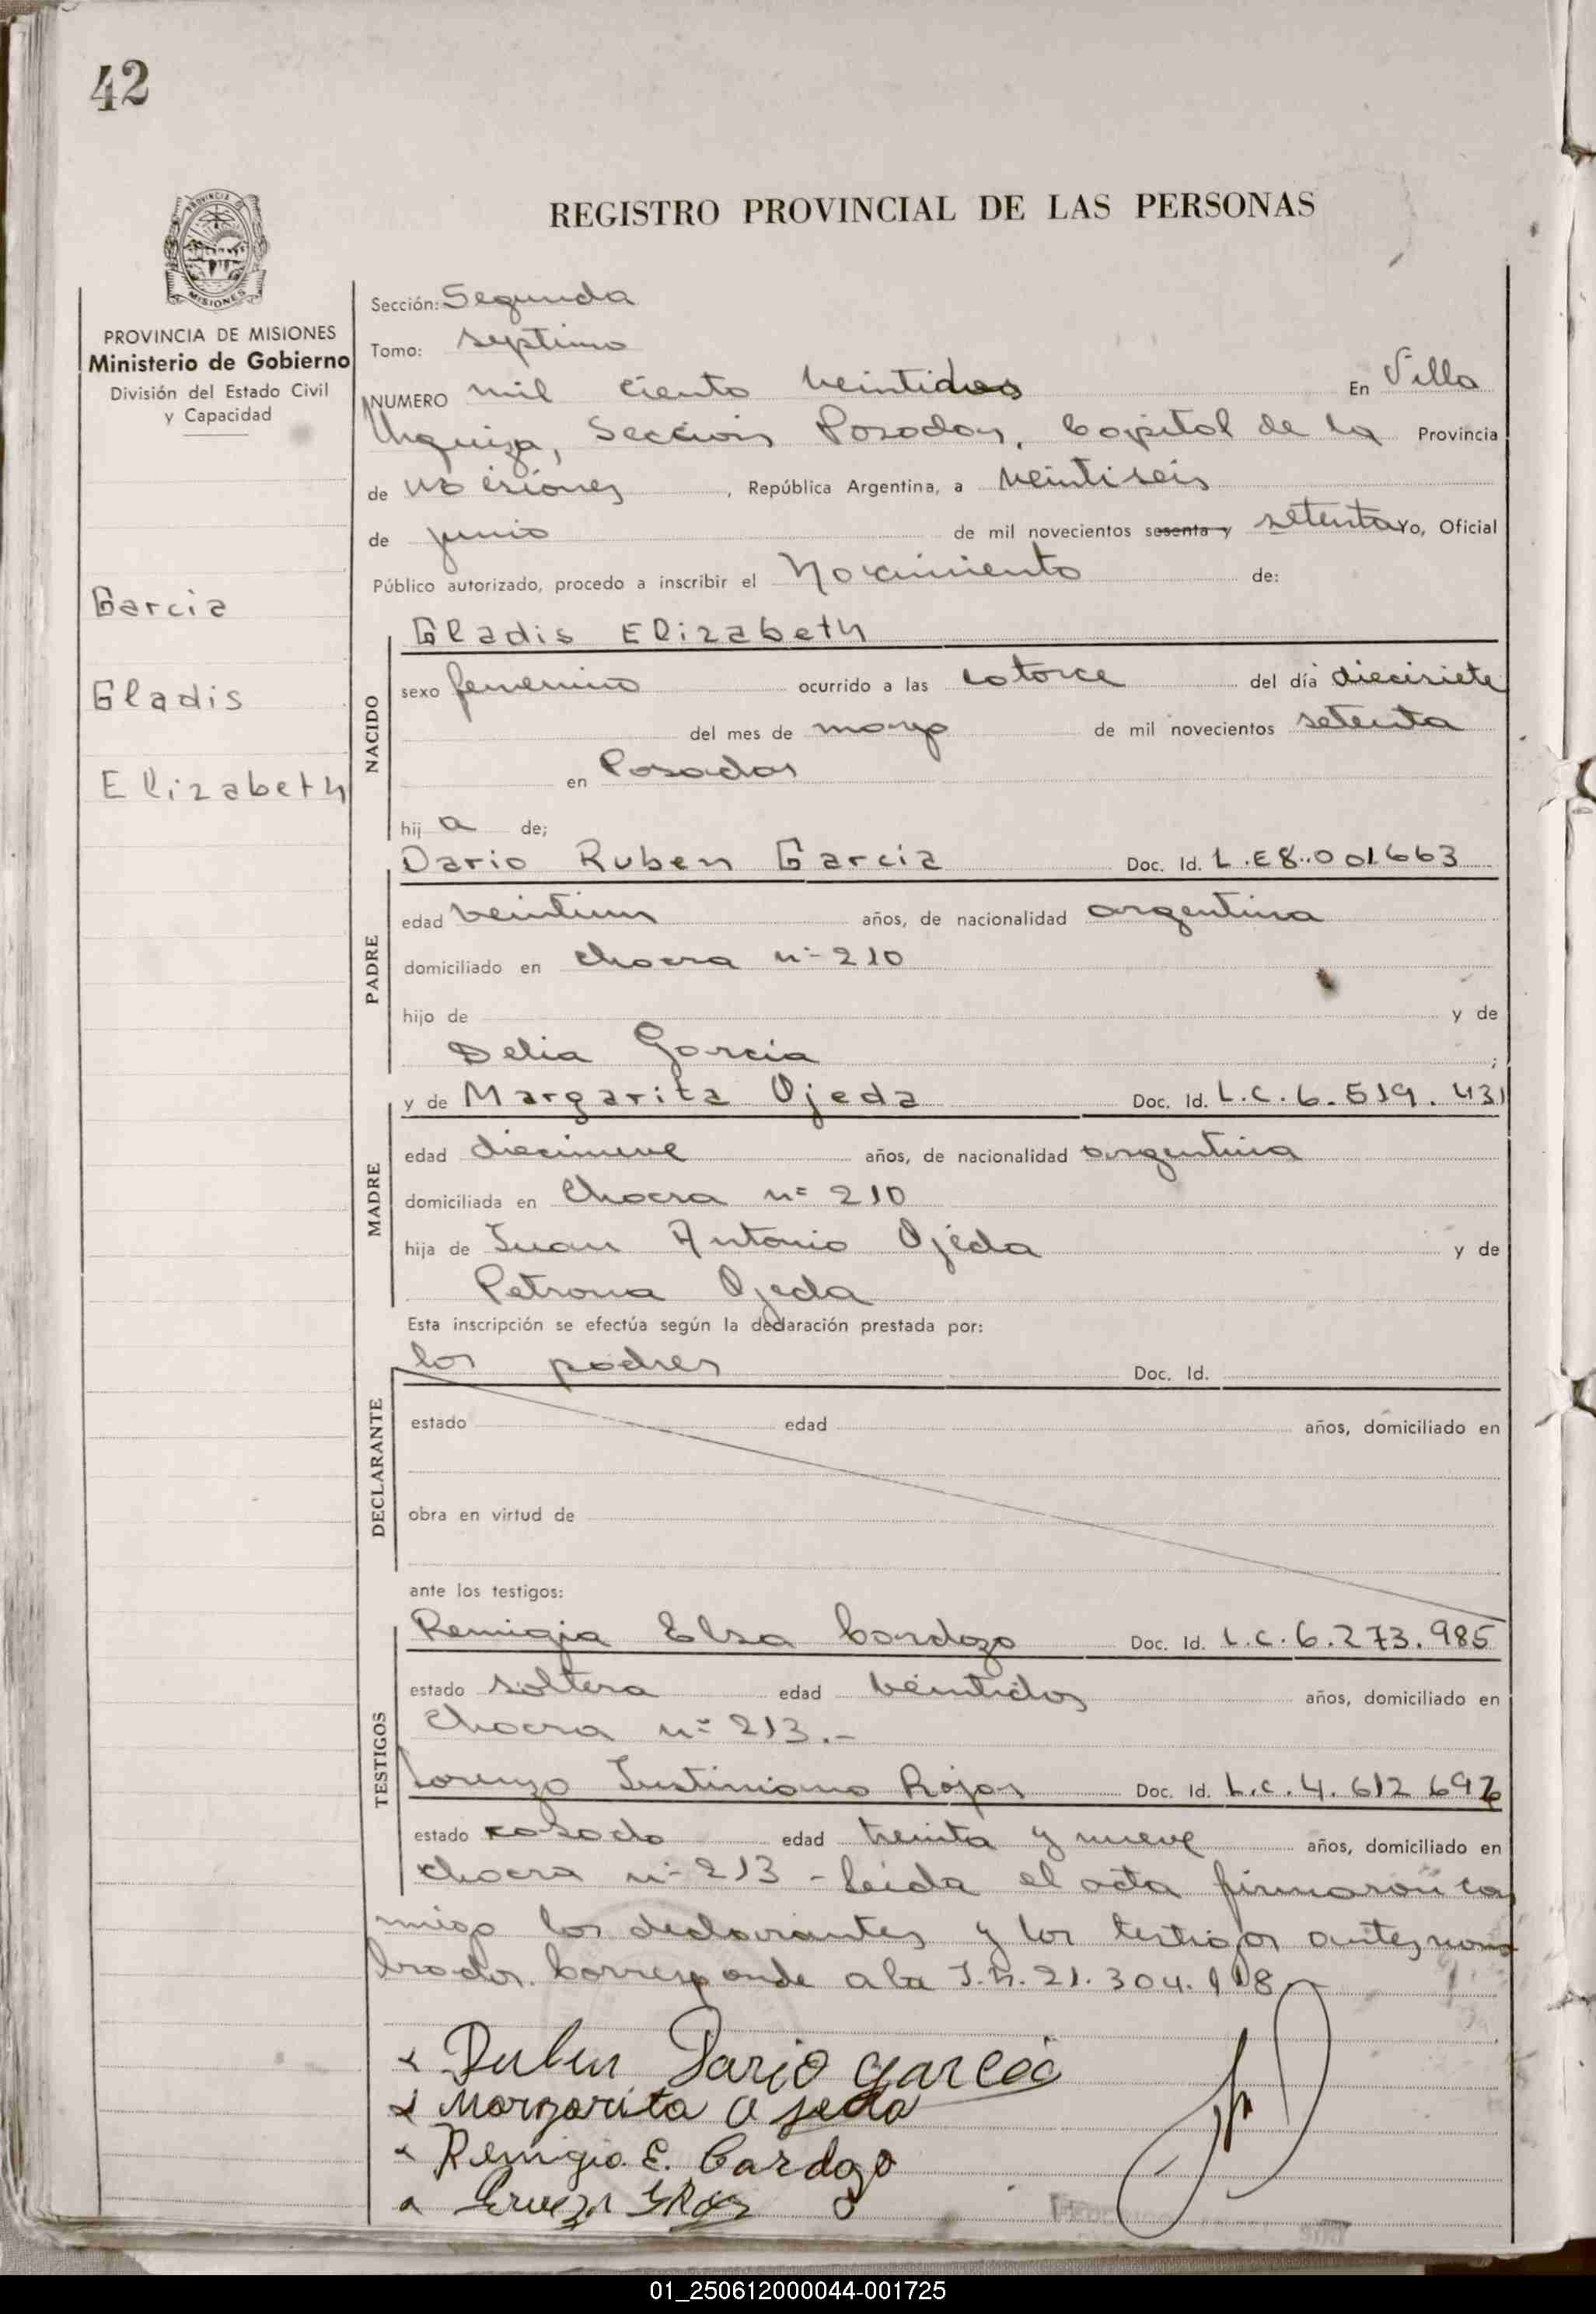 42
PROVINCIA DE
MISIONES
REGISTRO PROVINCIAL DE LAS PERSONAS
PROVINCIA DE MISIONES
Ministerio de Gobierno
División del Estado Civil
y Capacidad
Garcia
Gladis
Elizabeth
Sección: Segunda
Tomo: septimo
NUMERO mil ciento veintidos En Villa
Urquiza, Sección Posadas, Capital de la Provincia
de Misiones, República Argentina, a veintiseis
de junio de mil novecientos sesenta y setenta Yo, Oficial
Público autorizado, procedo a inscribir el Nacimiento de:
NACIDO
Gladis Elizabeth
sexo femenino ocurrido a las catorce del día diecisiete
del mes de marzo de mil novecientos setenta
en Posadas
hij a de;
PADRE
Dario Ruben Garcia Doc. Id. L.E 8..001.663
edad veintiun años, de nacionalidad argentina
domiciliado en chacra n- 210
hijo de y de
Delia Garcia ;
MADRE
y de Margarita Ojeda Doc. Id. L.C. 6. 519. 431
edad diecinueve años, de nacionalidad argentina
domiciliada en Chacra n= 210
hija de Juan Antonio Ojeda y de
Petrona Ojeda
Esta inscripción se efectúa según la declaración prestada por:
DECLARANTE
los padres Doc. Id.
estado edad años, domiciliado en
obra en virtud de
ante los testigos:
TESTIGOS
Remigia Elsa Cardozo Doc. Id. L.C. 6.273.985
estado soltera edad veintidos años, domiciliado en
Chacra n= 213.-
Lorenzo Justiniano Rojas Doc. Id. L.C. 4. 612
estado casado edad treinta y nueve años, domiciliado en
chacra n- 213 - Leida el acta firmaron con
migo los declarantes y los testigos antes nom
brados. Corresponde a la 21. 304. 118
x Ruben Dario Garcia
x Margarita Ojeda
x Remigia E. Cardozo
01_250612000044-001725